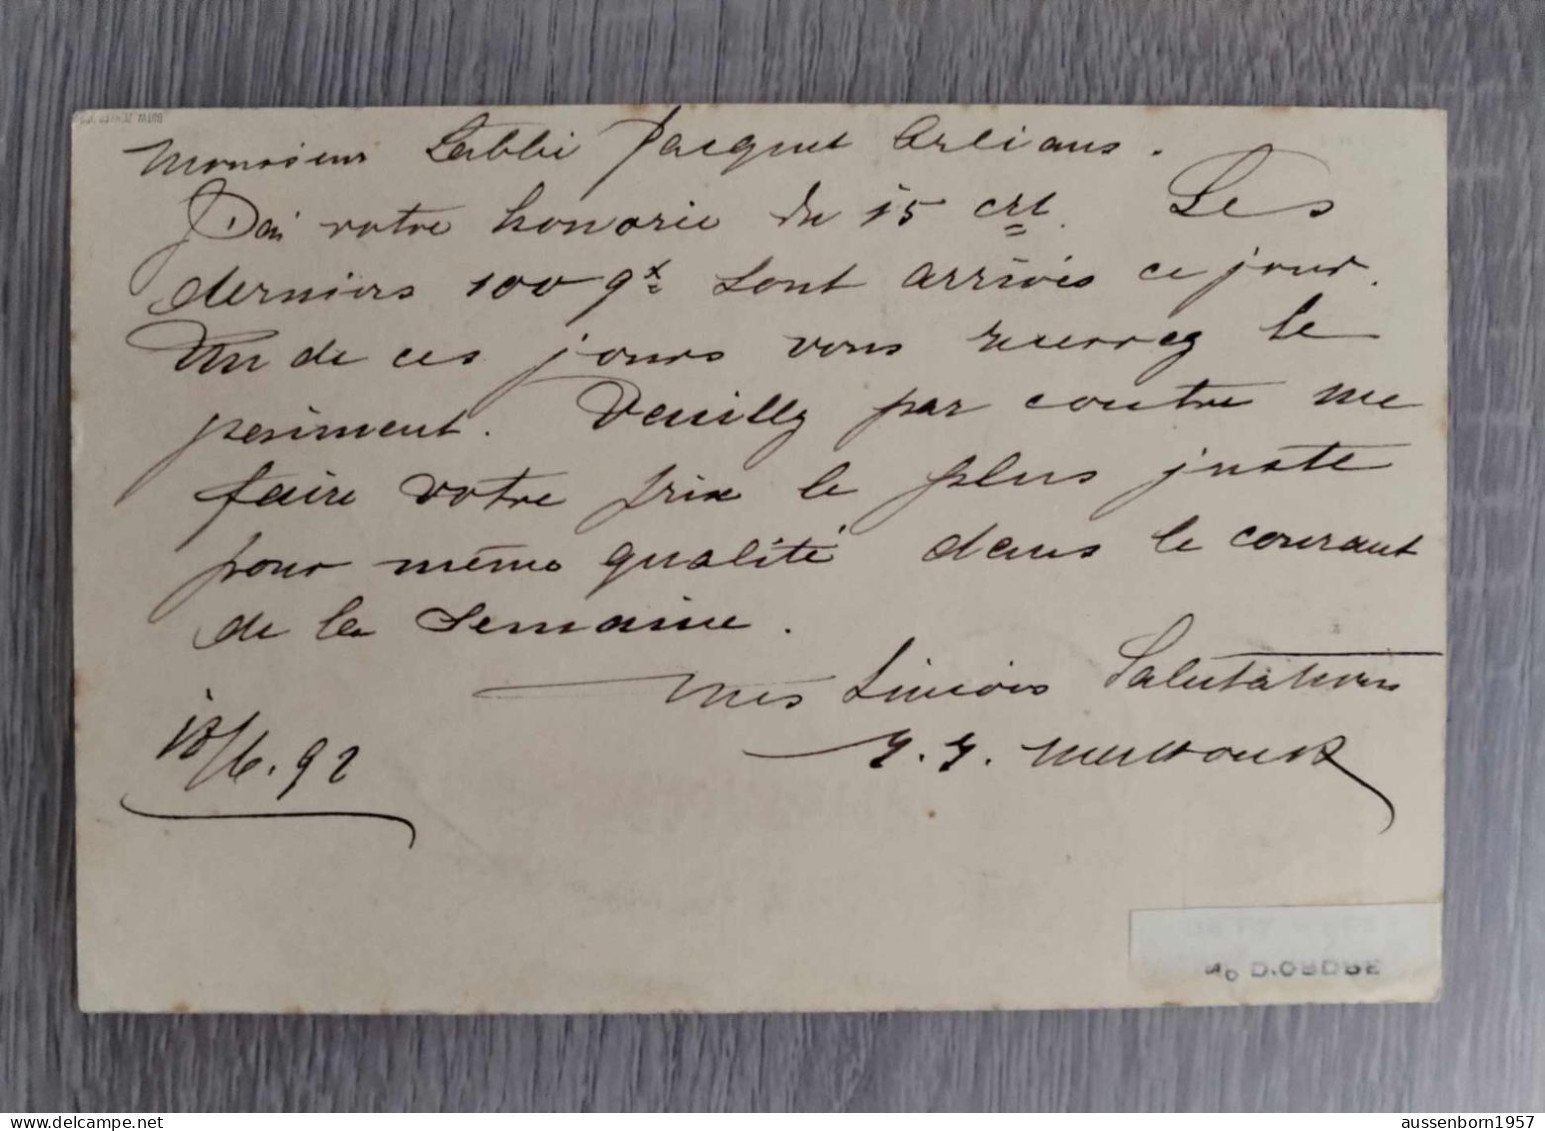 Monsieur Labbé Jacquet Orléans.
J'ai votre honorée du 15 crt. Les
derniers 100 qx sont arrivés ce jour.
Un de ces jours vous recevrez le
paiement. Veuillez par contre me
faire votre prix le plus juste
pour même qualité dans le courant
de la Semaine.
Mes Sincères Salutations
18/6.92
No D'ORDRE
aussenborn1957